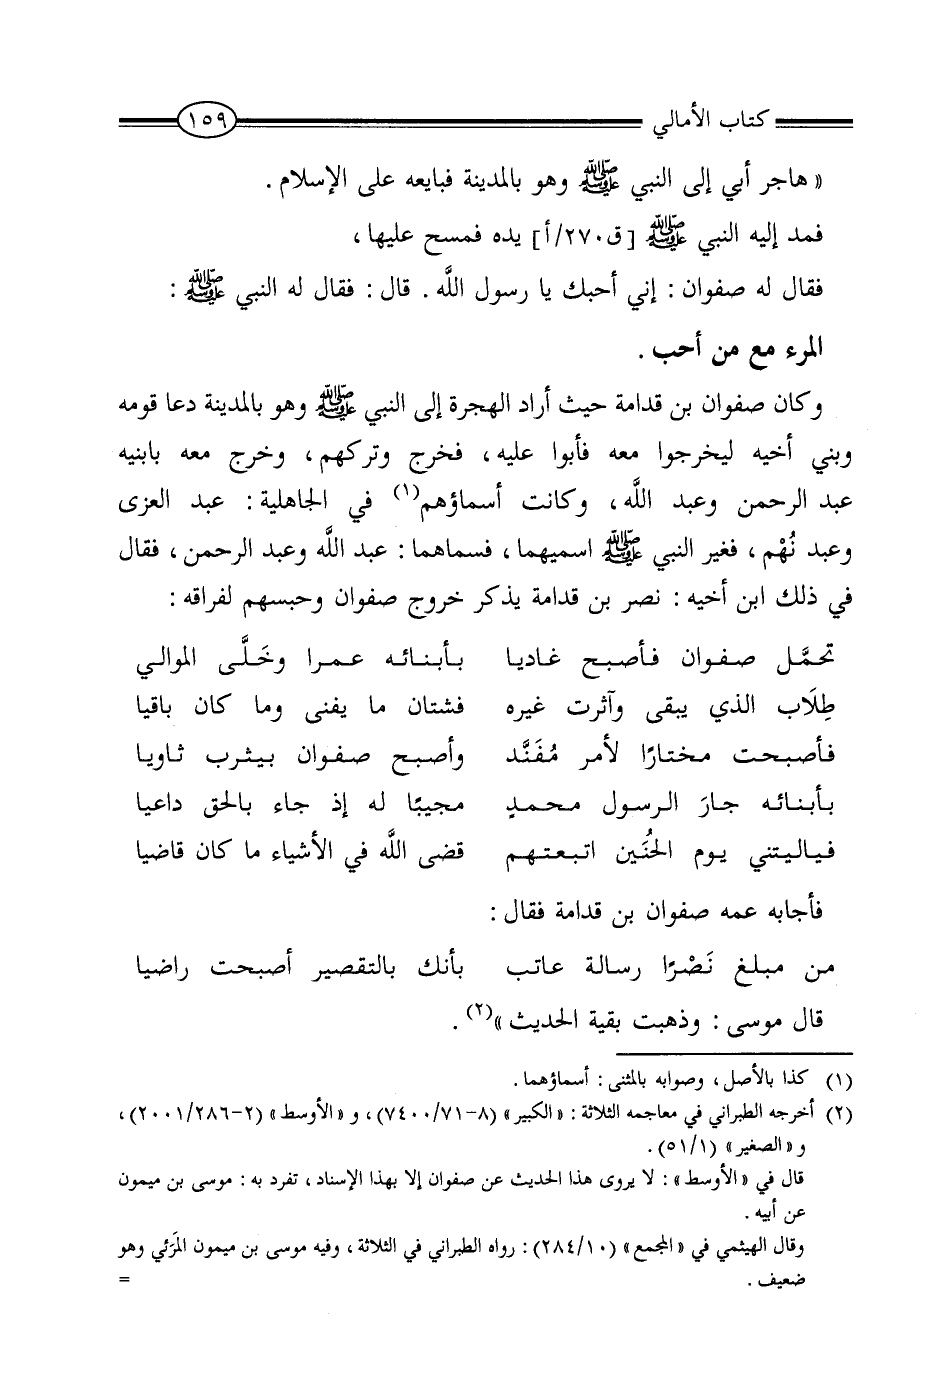 كتاب الأمالي ١٥٩
« هاجر أبي إلى النبي ﷺ وهو بالمدينة فبايعه على الإسلام .
فمد إليه النبي ﷺ [ق٢٧٠/أ] يده فمسح عليها ،
فقال له صفوان : إني أحبك يا رسول اللَّه . قال : فقال له النبي ﷺ :
المرء مع من أحب .
وكان صفوان بن قدامة حيث أراد الهجرة إلى النبي ﷺ وهو بالمدينة دعا قومه
وبني أخيه ليخرجوا معه فأبوا عليه ، فخرج وتركهم ، وخرج معه بابنيه
عبد الرحمن وعبد اللَّه ، وكانت أسماؤهم(١) في الجاهلية : عبد العزى
وعبد نُهْم ، فغير النبي ﷺ اسميهما ، فسماهما : عبد اللَّه وعبد الرحمن ، فقال
في ذلك ابن أخيه : نصر بن قدامة يذكر خروج صفوان وحبسهم لفراقه :
تحمَّل صفوان فأصبح غاديا بأبنائه عمرا وخَلَّى الموالي
طِلَاب الذي يبقى وآثرت غيره فشتان ما يفنى وما كان باقيا
فأصبحت مختارًا لأمر مُفَنَّد وأصبح صفوان بيثرب ثاويا
بأبنائه جارَ الرسول محمدٍ مجيبًا له إذ جاء بالحق داعيا
فياليتني يوم الحُنَين اتبعتهم قضى اللَّه في الأشياء ما كان قاضيا
فأجابه عمه صفوان بن قدامة فقال :
من مبلغ نَصْرًا رسالة عاتب بأنك بالتقصير أصبحت راضيا
قال موسى : وذهبت بقية الحديث »(٢) .
(١) كذا بالأصل ، وصوابه بالمثنى : أسماؤهما .
(٢) أخرجه الطبراني في معاجمه الثلاثة : «الكبير» (٨-٧٤٠٠/٧١) ، و «الأوسط» (٢-٢٠٠١/٢٨٦) ،
و «الصغير» (٥١/١) .
قال في «الأوسط» : لا يروى هذا الحديث عن صفوان إلا بهذا الإسناد ، تفرد به : موسى بن ميمون
عن أبيه .
وقال الهيثمي في «المجمع» (٢٨٤/١٠) : رواه الطبراني في الثلاثة ، وفيه موسى بن ميمون المَرَئي وهو
ضعيف . =